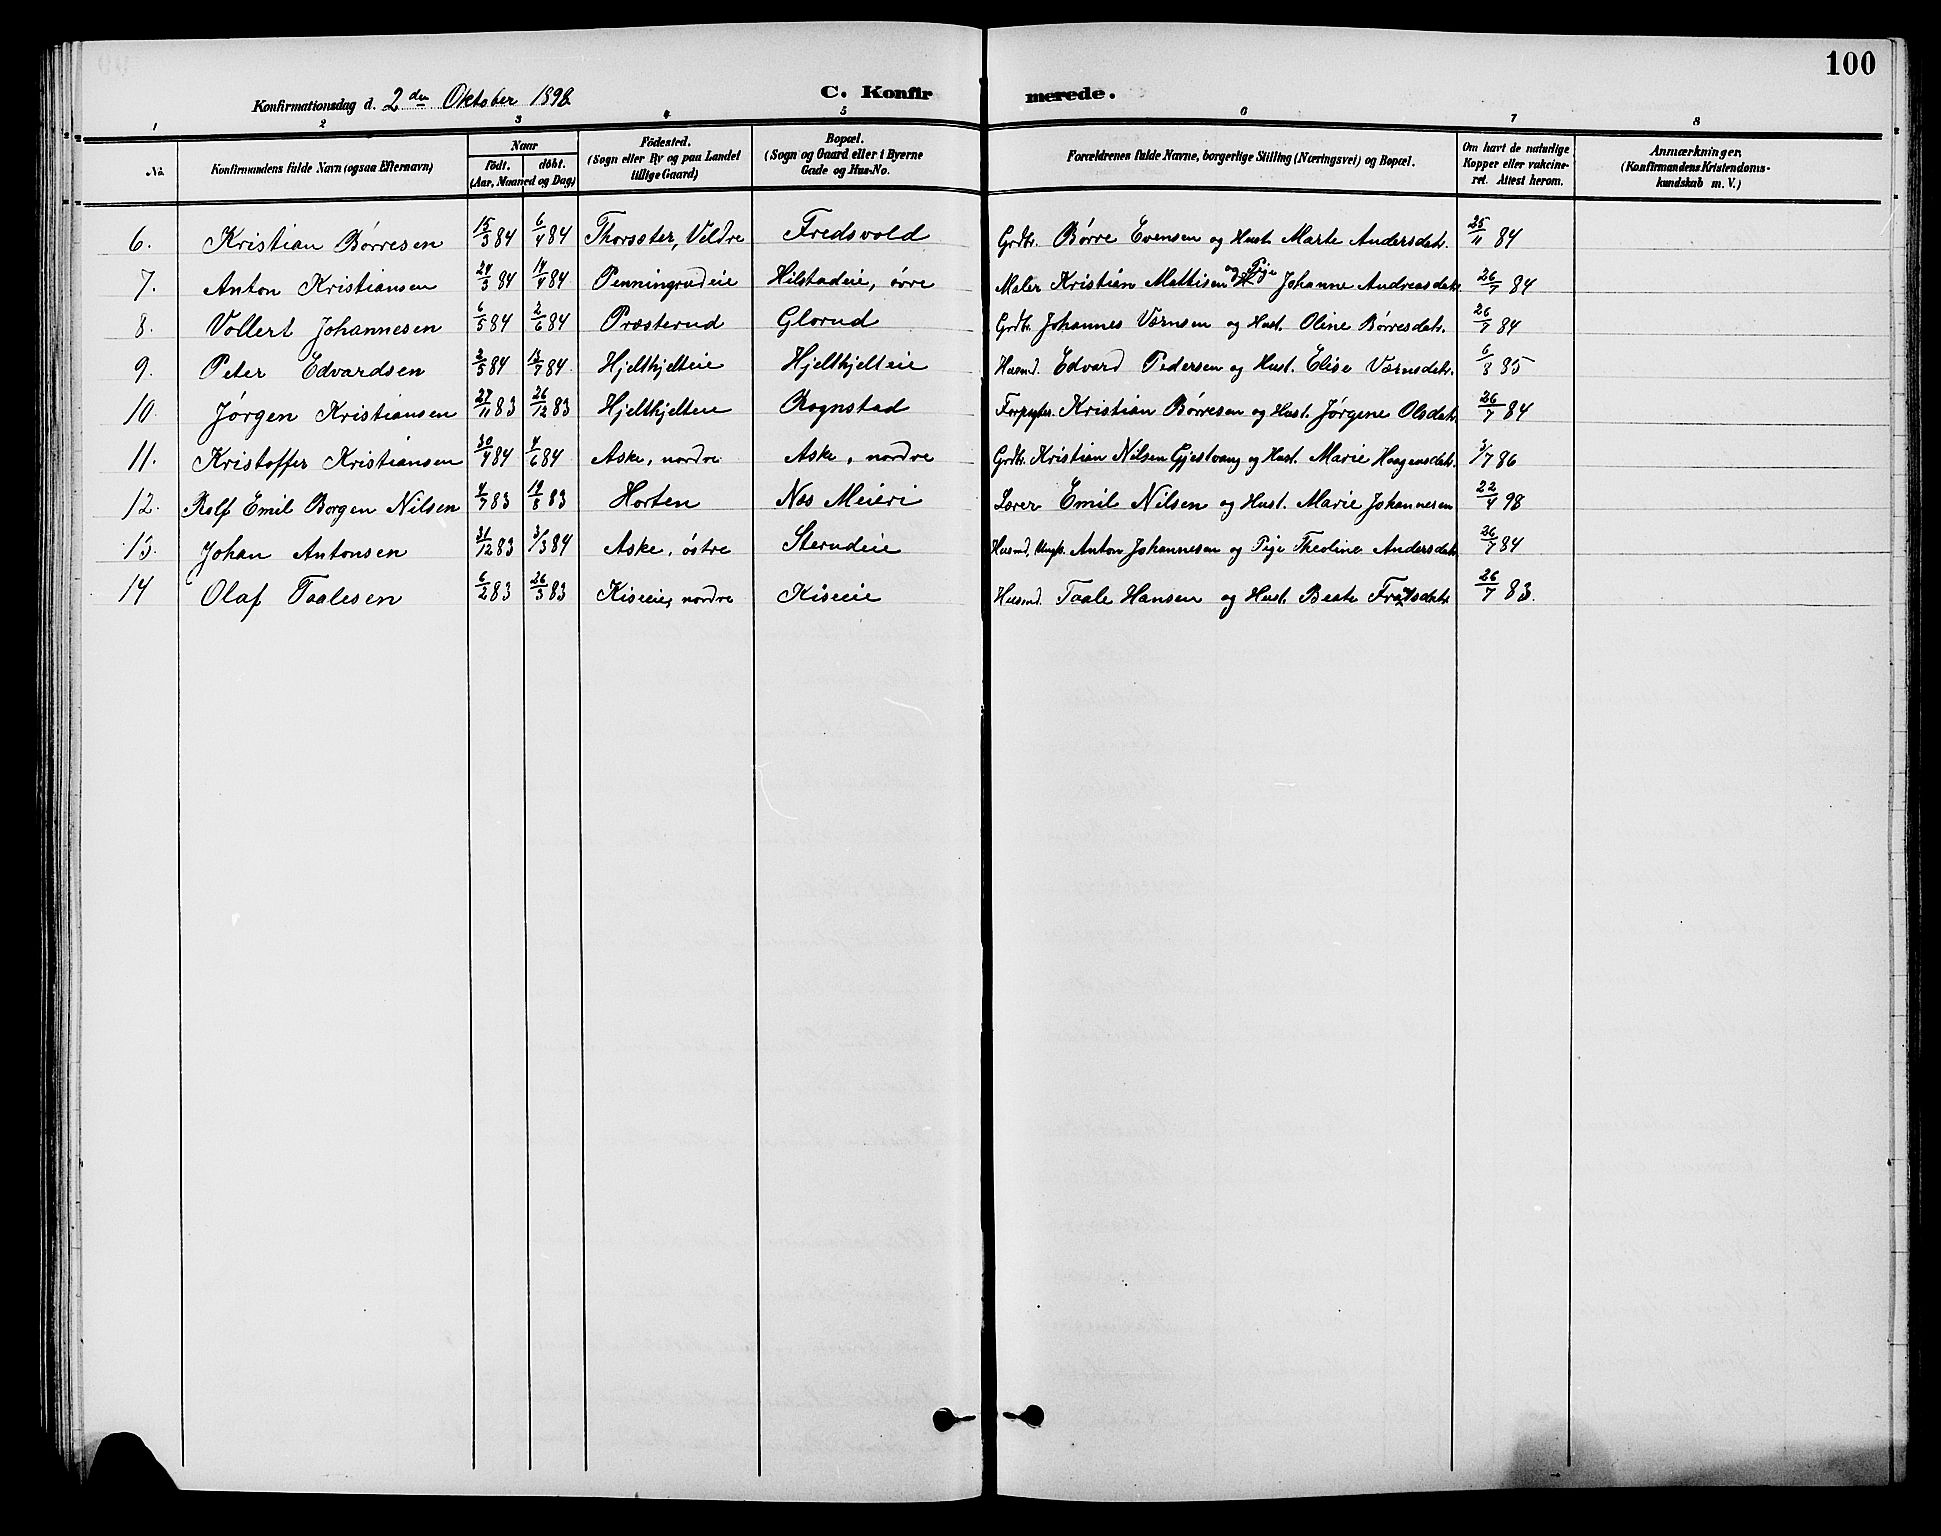 100
Konfirmationsdag d. 2den Oktober 1898
C. Konfirmerede.
1 2 3 4 5 6 7 8
No. Konfirmandens fulde Navn (ogsaa Efternavn) Naar födt. döbt. (Aar, Maaned og Dag) Födested. (Sogn eller By og paa Landet tillige Gaard) Bopæl. (Sogn og Gaard eller i Byerne Gade og Hus-No. Forældrenes fulde Navne, borgerlige Stilling (Næringsvei) og Bopæl. Om havt de naturlige Kopper eller vakcineret. Attest herom. Anmærkninger, (Konfirmandens Kristendomskundskab m. V.)
6. Kristian Børresen 15/3 84 6/4 84 Thorsæter, Veldre Fredsvold Grdbr. Børre Evensen og Hust. Marte Andersdatr. 25/11 84
7. Anton Kristiansen 24/3 84 14/4 84 Penningrudeie Hilstadeie, øvre Maler Kristian Mattisen og Pige Johanne Andreasdatr 26/7 84
8. Vollert Johannesen 6/5 84 2/6 84 Præsterud Glorud Grdbr. Johannes Værnsen og Hust. Oline Børresdatr. 26/7 84
9. Peter Edvardsen 2/5 84 13/7 84 Hjelthjelteie Hjelthjelteie Husmd. Edvard Pedersen og Hust. Elise Værnsdatr. 6/3 85
10. Jørgen Kristiansen 27/11 83 26/12 83 Hjelthjelteie Rognstad Forpagter. Kristian Børresen og Hust. Jørgine Olsdatr 26/7 84
11. Kristoffer Kristiansen 30/4 84 4/6 84 Aske, nordre Aske, nordre Grdbr. Kristian Nilsen Gjestvang og Hust. Marie Haagensdatr. 3/7 86
12. Rolf Emil Borgen Nilsen 4/7 83 19/8 83 Horten Næs Meieri Lærer Emil Nilsen og Hust. Marie Johannesen 22/4 98
13. Johan Antonsen 31/12 83 3/3 84 Aske, østre Sterudeie Husmd. Ungk. Anton Johannesen og Pige Theoline Andersdatr 26/7 84
14 Olaf Taalesen 6/2 83 26/3 83 Kiseeie, nordre Kiseeie Husmd. Taale Hansen og Hust. Beate 26/7 83.